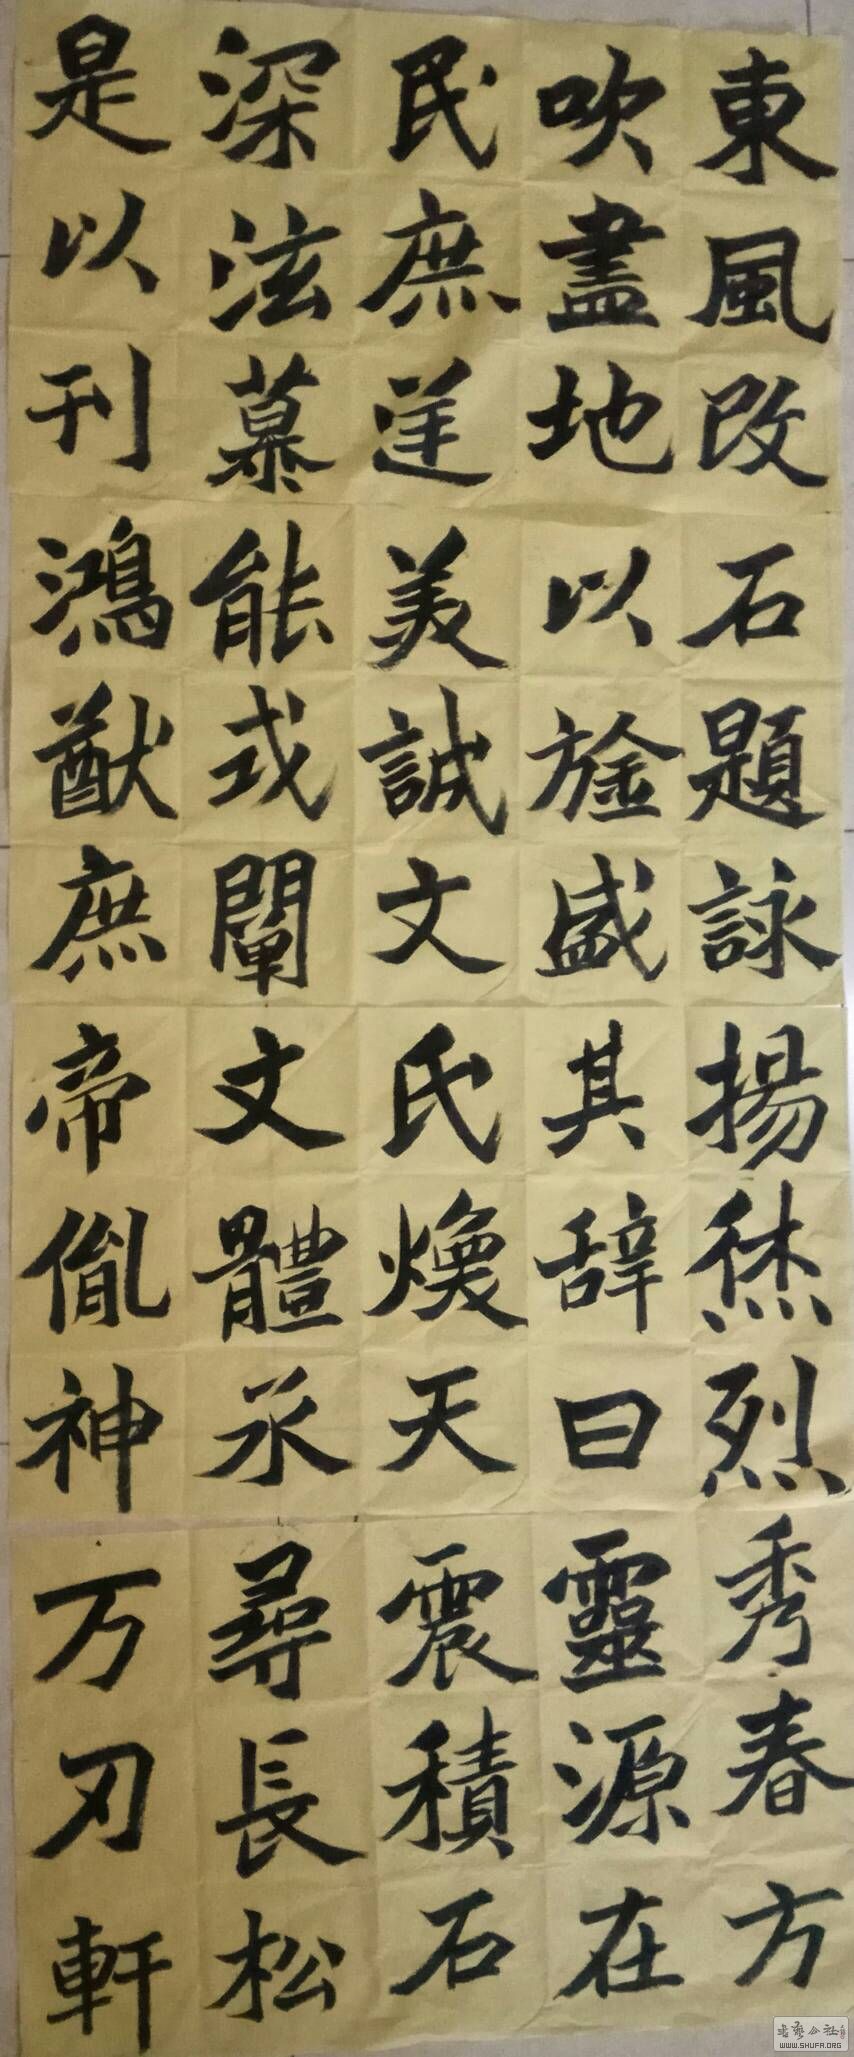 東風改石題詠揚烋烈秀春方
吹盡地以旍盛其辞曰靈源在
民庶逆美誠文氏煥天震積石
深泫慕能式闡文體永尋長松
是以刊鴻猷庶帝胤神万刃軒
WWW.SHUFA.ORG